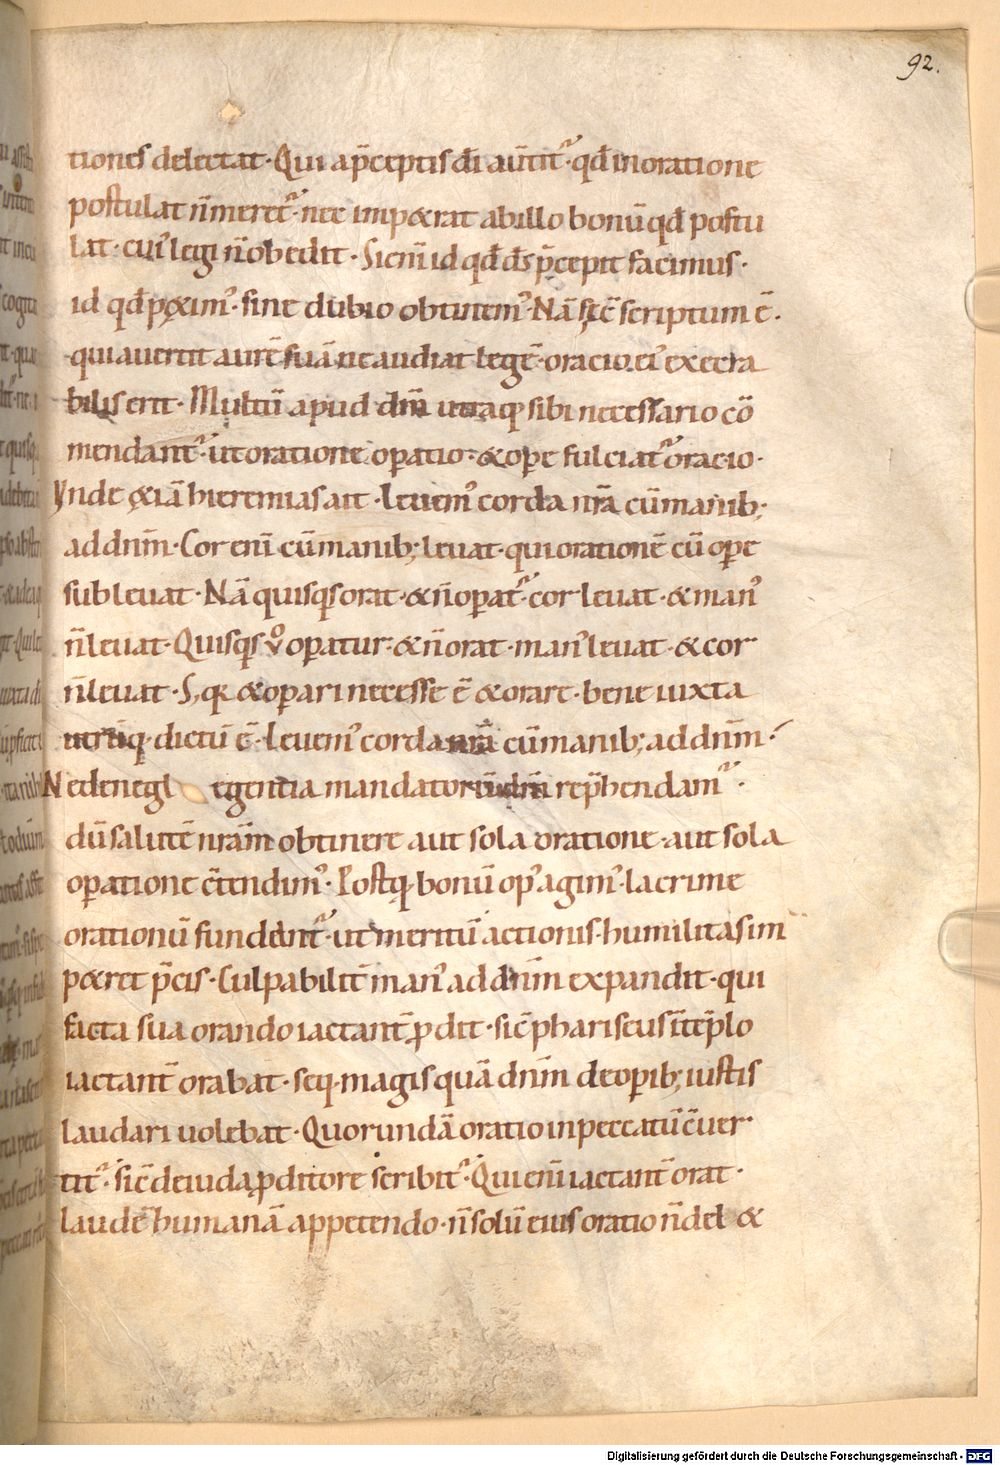 92.
tiones delectat. Qui a p̄ceptis dī auertit᷑. qd̄ in oratione
postulat n̄ meret᷑. nec impetrat ab illo bonū qd̄ postu
lat. cui᷒ legi n̄ obedit. Si enī id qd̄ ds̄ p̄cepit facimus.
id qd̄ petim᷒. sine dubio obtinem᷒. Nā sic̄ scriptum ē.
qui auertit aurē suā ne audiat legē. oracio ei᷒ execra
bilis erit. Multū apud dm̄ utraq; sibi necessario cō
mendant᷑. ut oratione oꝑatio. & oꝑe fulciat᷑ oracio.
Vnde & iā hieremias ait. Leuem᷒ corda nr̄a cū manib;
ad dnm̄. Cor enī cū manib; leuat. qui orationē cū oꝑe
subleuat. Nā quisqs orat. & n̄ oꝑat᷑. cor leuat. & man᷒
n̄ leuat. Quisqs v̊ oꝑatur. & n̄ orat. man᷒ leuat. & cor
n̄ leuat. S; qr̄ & oꝑari necesse ē & orare. bene iuxta
utrūq; dictū ē. Leuem᷒ corda nr̄a cū manib; ad dnm̄.
Ne de negl egentia mandatorū dnī rep̄hendam᷑.
dū salutē nrām obtinere aut sola oratione. aut sola
oꝑatione c̄tendim᷒. Postq̄ bonū op᷒ agim᷒. lacrime
orationū fundant᷑. ut meritū actionis. humilitas im
petret p̄cis. Culpabilit̄ man᷒ ad dnm̄ expandit. qui
facta sua orando iactant̄ ꝓdit. sic̄ phariseus ī tēplo
iactant̄ orabat. seq; magis quā dnm̄ de oꝑib; iustis
laudari uolebat. Quorundā oratio in peccatū c̄uer
tit᷑. sic̄ de iuda ꝓditore scribit᷑. Qui enī iactant̄ orat.
laudē humanā appetendo. n̄ solū eius oratio n̄ del &
Digitalisierung gefördert durch die Deutsche Forschungsgemeinschaft - DFG